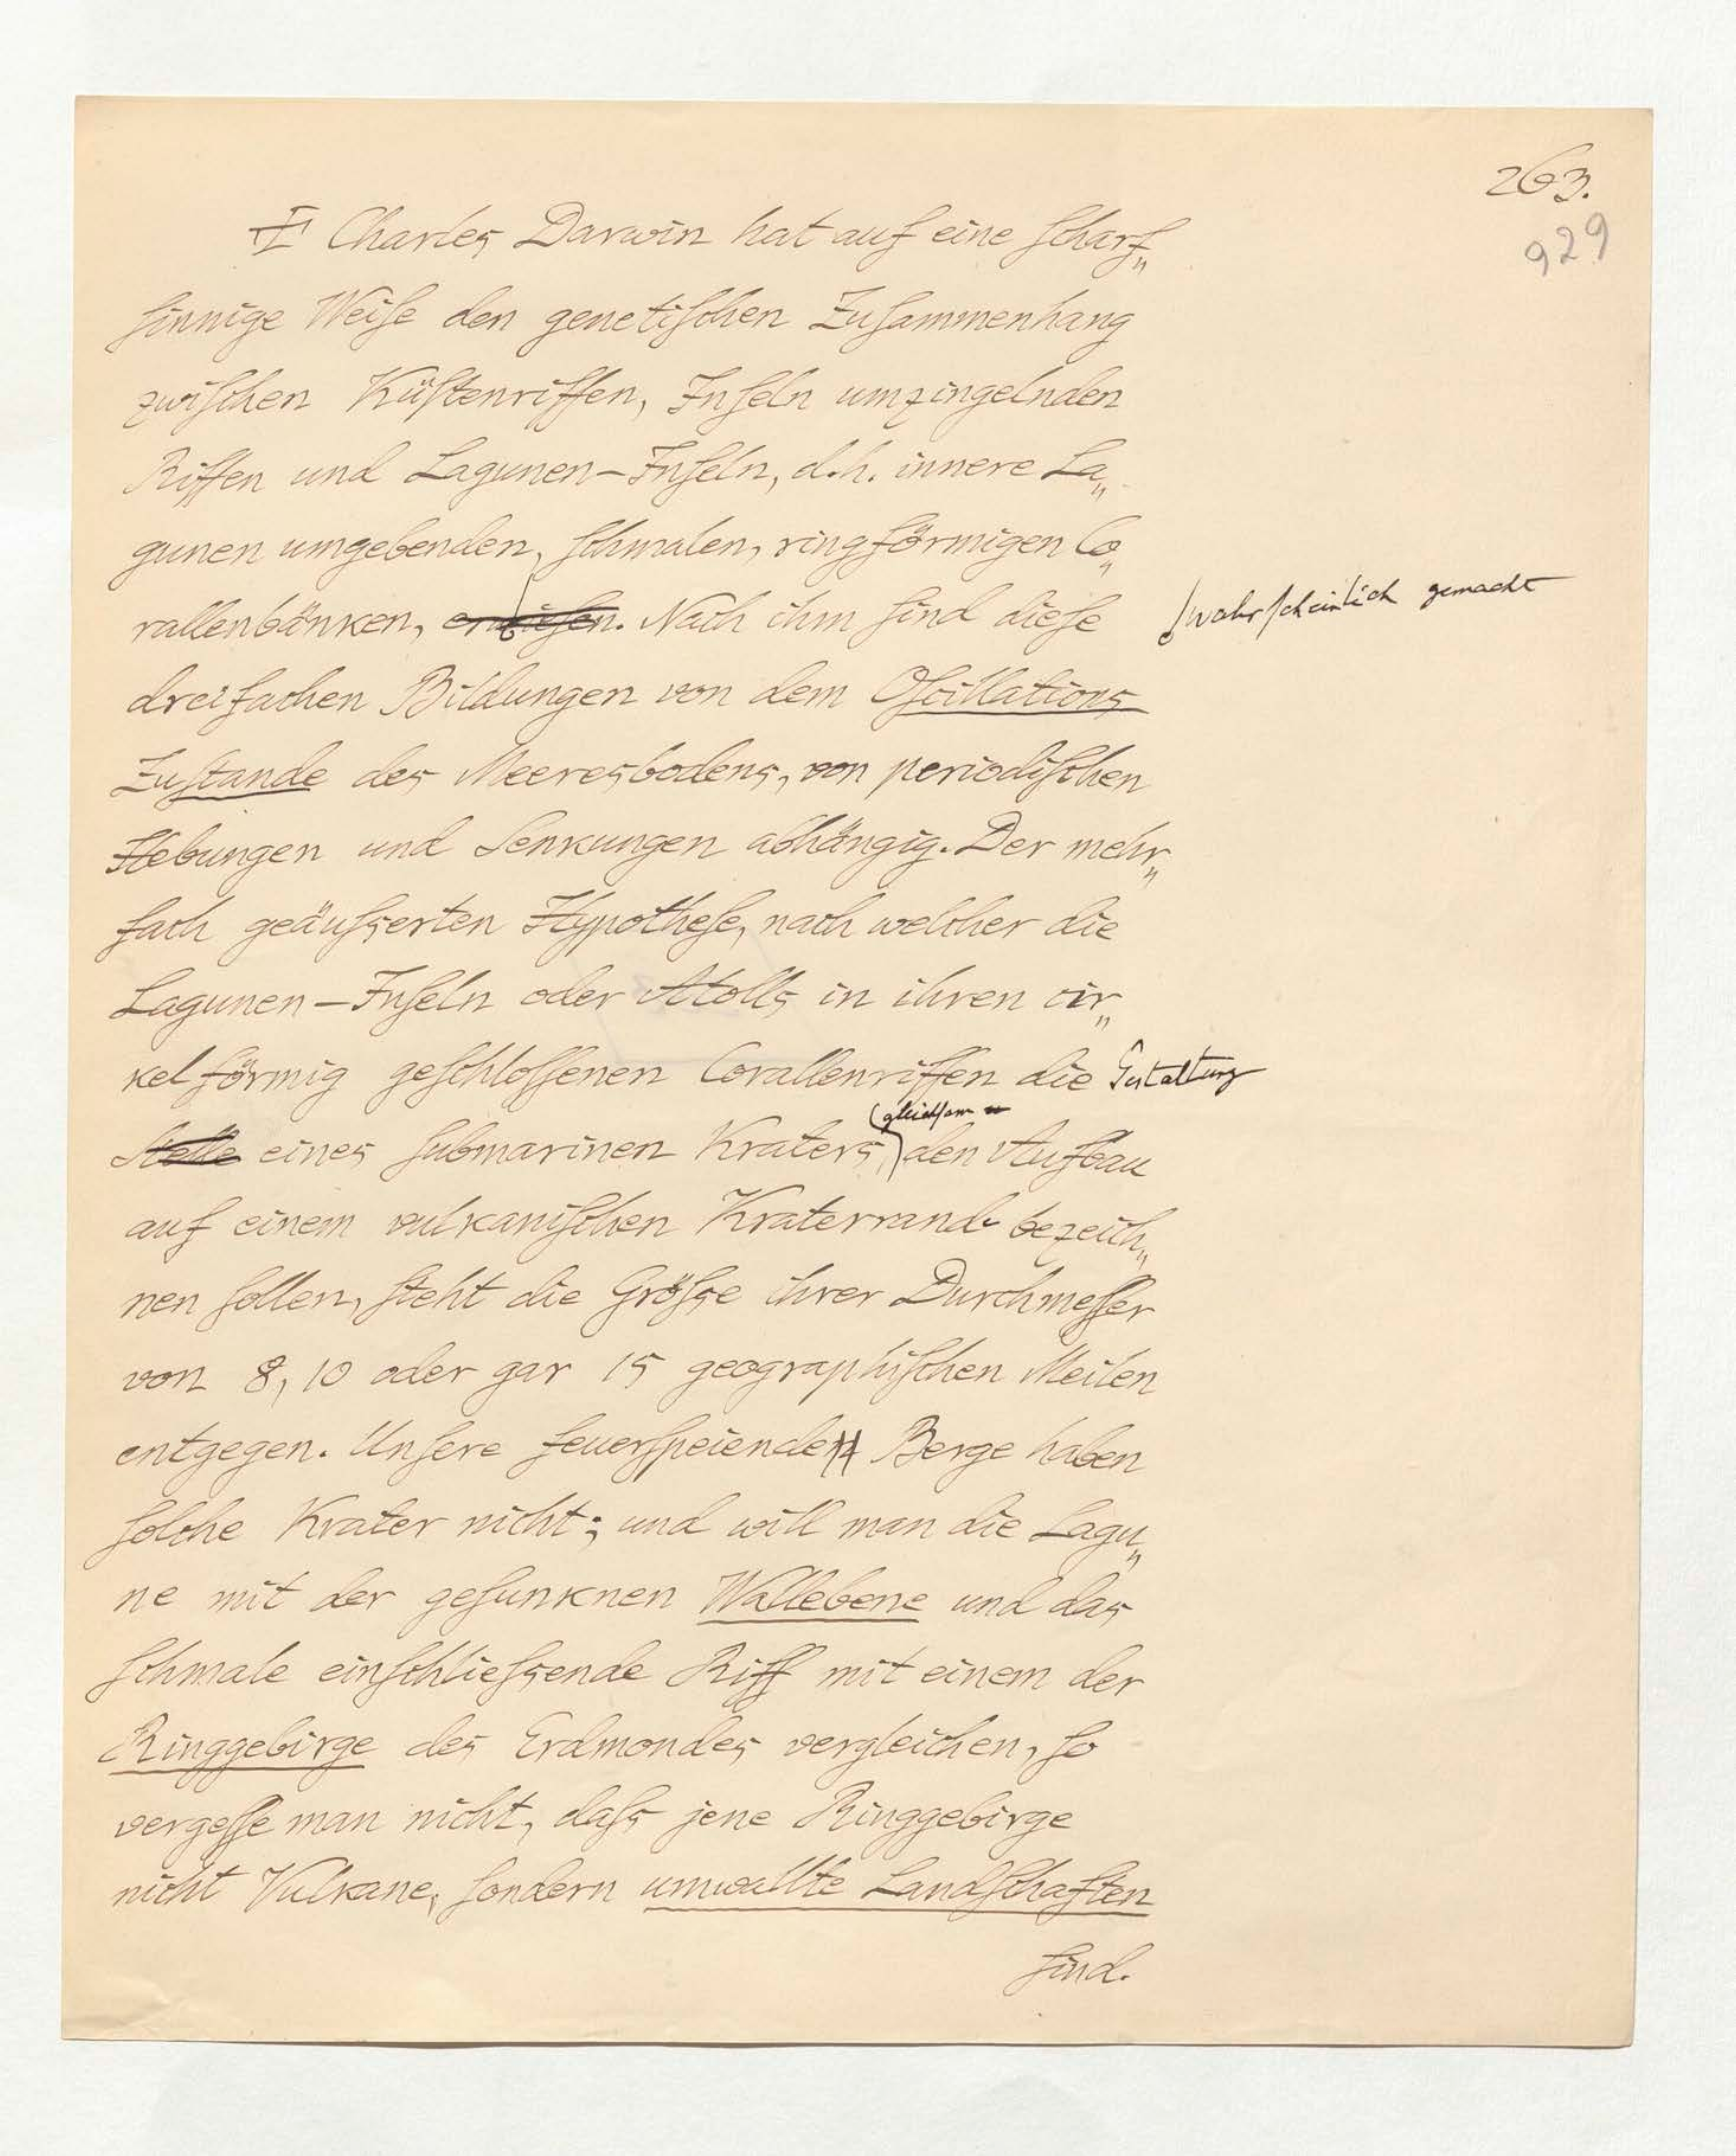 263.
929
Charles Darwin hat auf eine scharf„
sinnige Weise den genetischen Zusammenhang
zwischen Küstenriffen, Inseln umzingelnden
Riffen und Lagunen-Inseln, d.h. innere La„
gunen umgebenden, schmalen, ringförmigen Co„
rallenbänken, erwiesen. Nach ihm sind diese
wahrscheinlich gemacht
dreifachen Bildungen von dem Oscillations
Zustande des Meeresbodens, von periodischen
Hebungen und Senkungen abhängig. Der mehr„
fach geäusserten Hypothese, nach welcher die
Lagunen-Inseln oder Atolls in ihren cir„
kelförmig geschlossenen Corallenriffen die Gestaltung
gleichsam
Stelle eines submarinen Kraters, den Aufbau
auf einem vulkanischen Kraterrande bezeich„
nen sollen, steht die Grösse ihrer Durchmesser
von 8, 10 oder gar 15 geographischen Meilen
entgegen. Unsere feuerspeienden Berge haben
solche Krater nicht; und will man die Lagu„
ne mit der gesunknen Wallebene und das
schmale einschliessende Riff mit einem der
Ringgebirge des Erdmondes vergleichen, so
vergesse man nicht, dass jene Ringgebirge
nicht Vulkane, sondern umwallte Landschaften
sind.